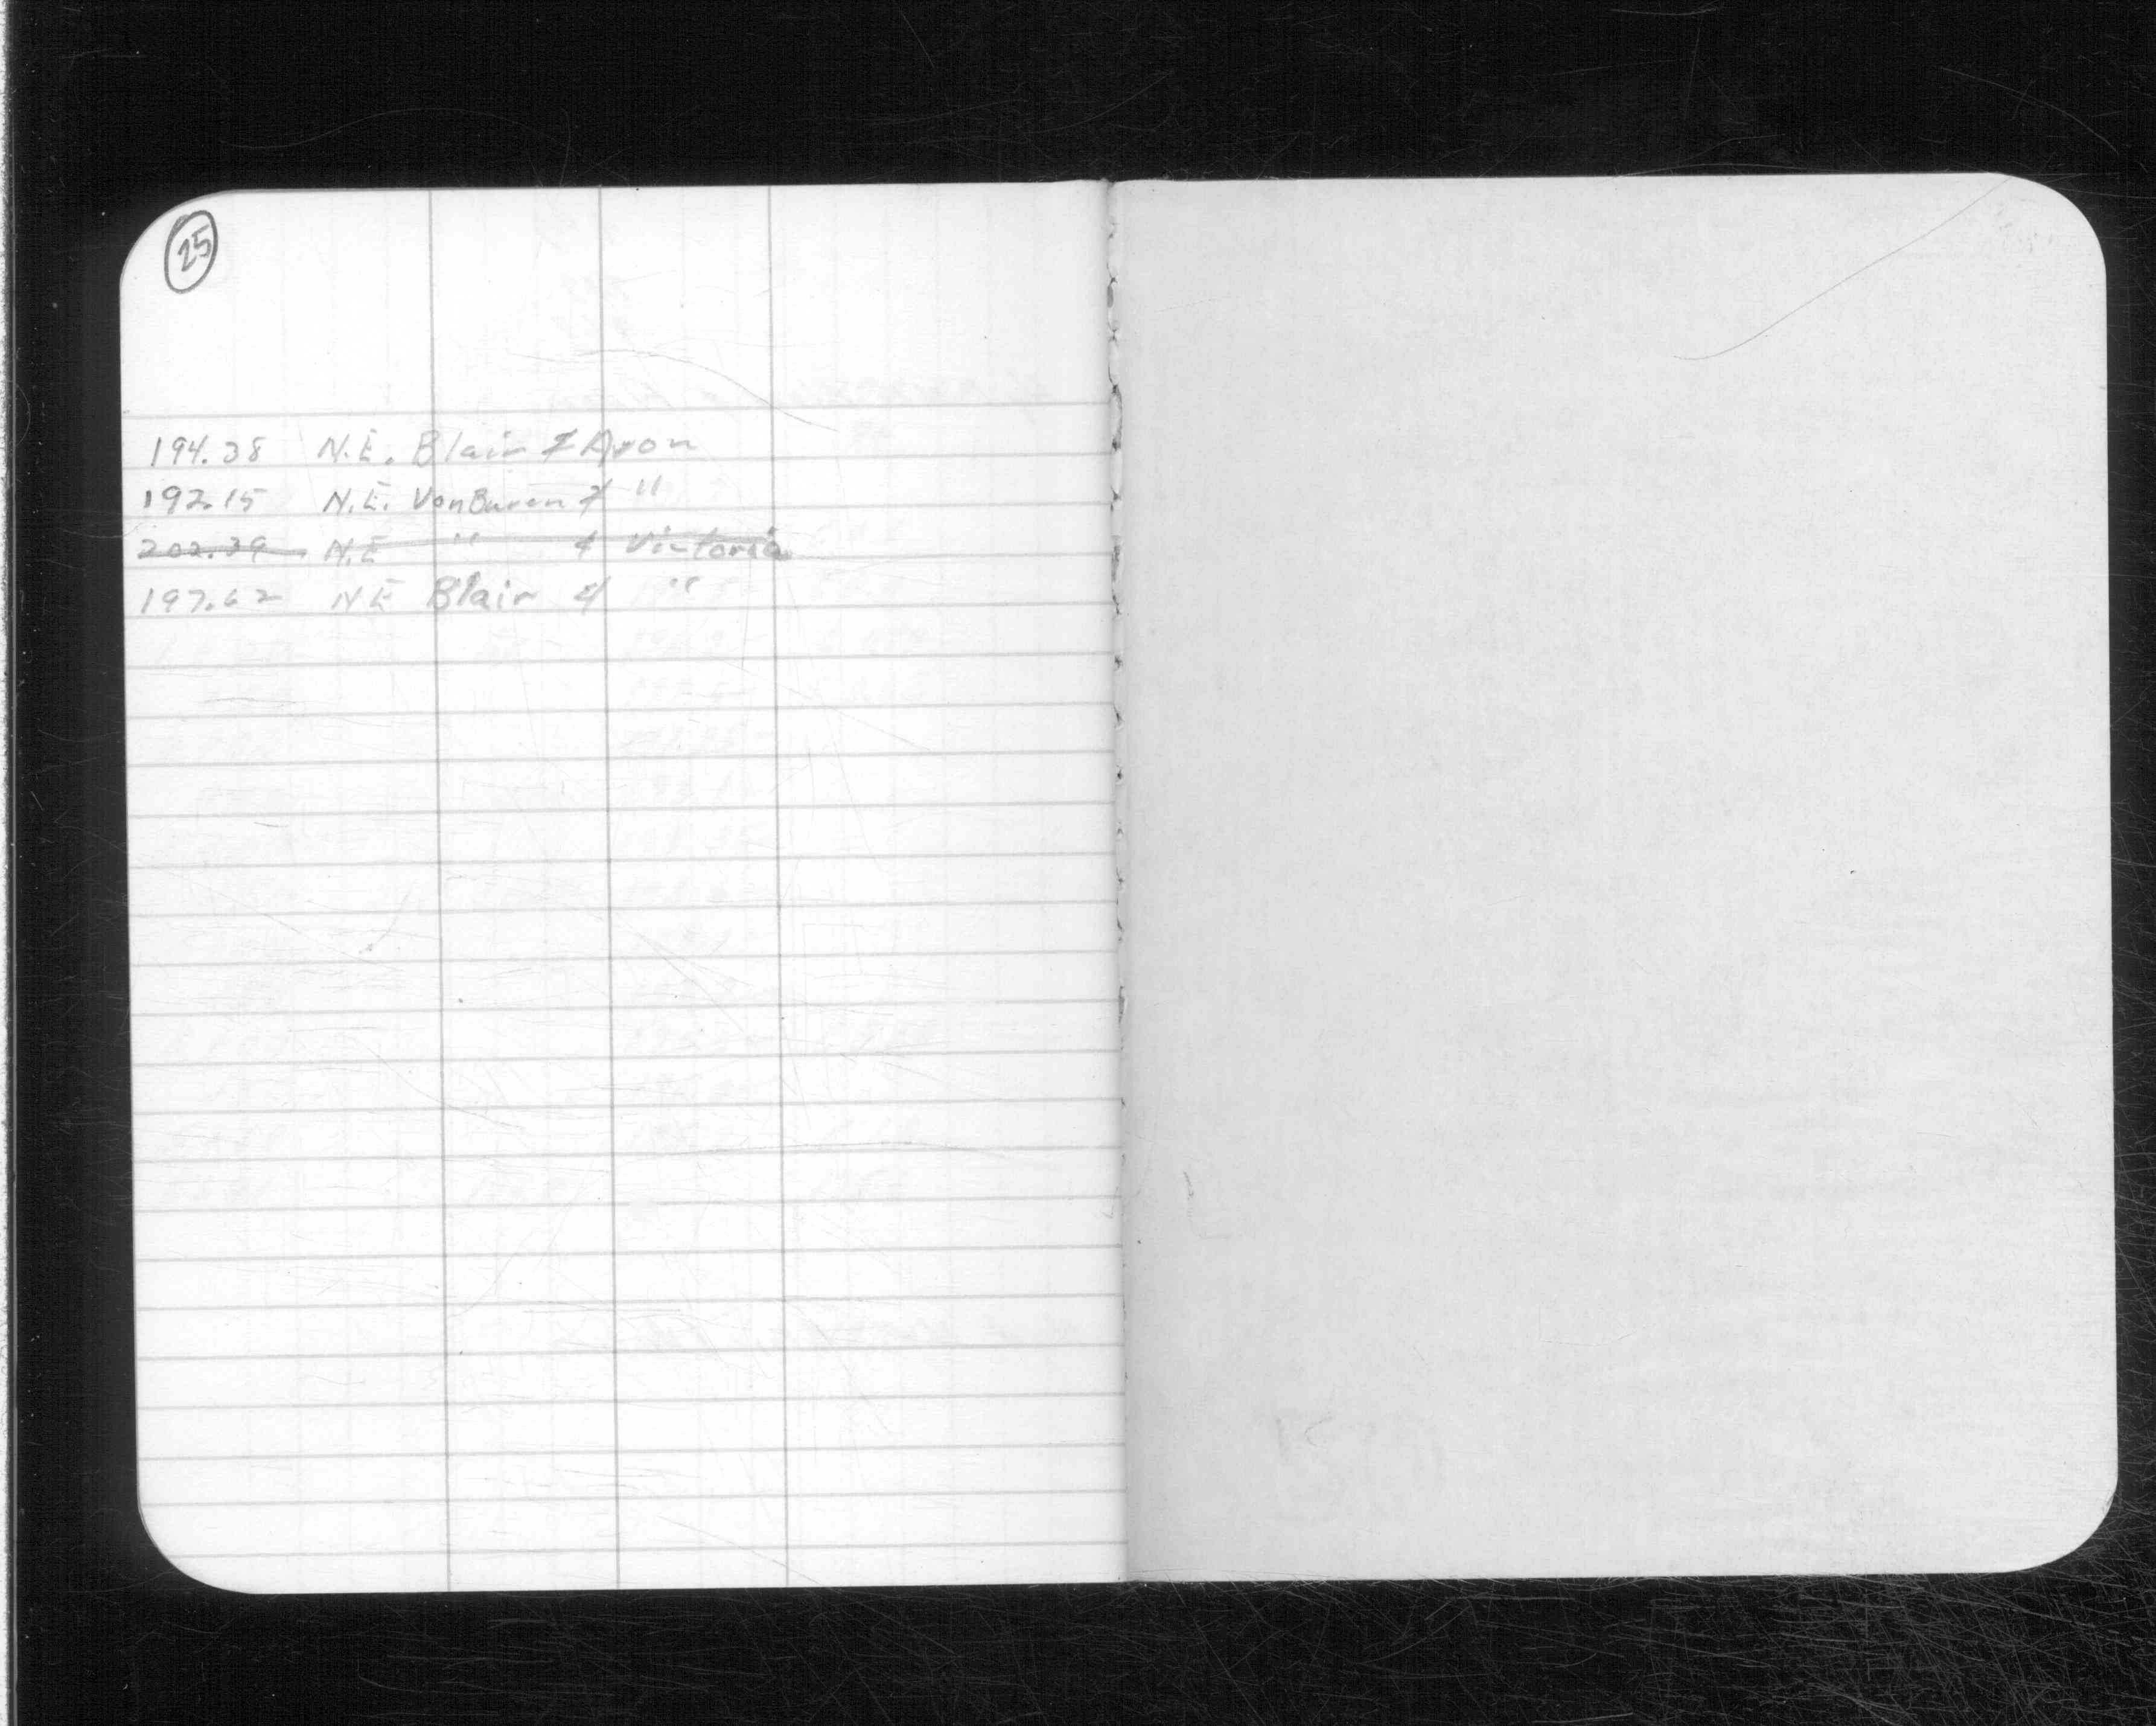 25
194.38 N.E. Blair & Avon
192.15 N.E. VanBuren & "
202.39 N.E " & Victoria
197.62 NE Blair & "